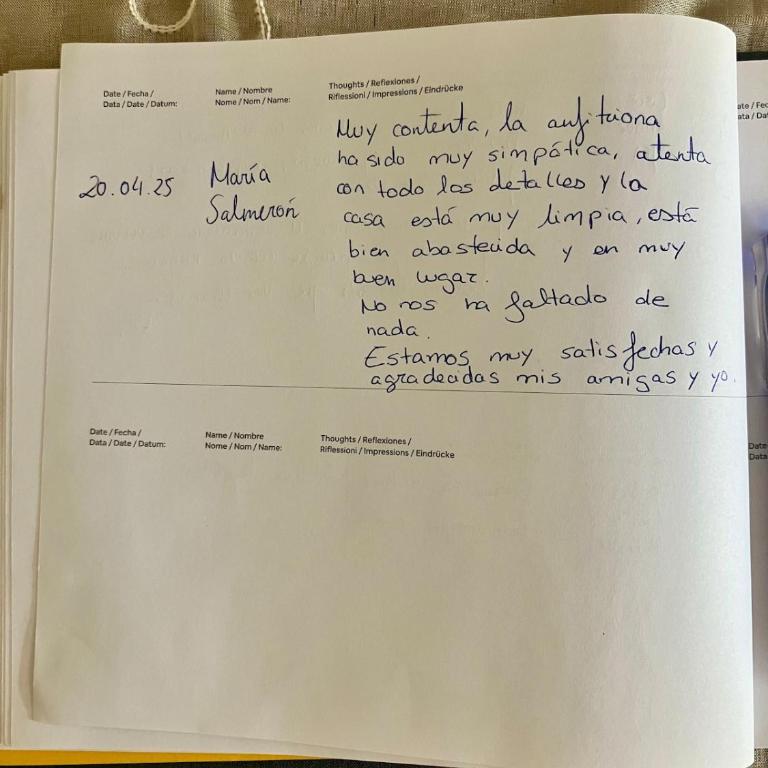 Date / Fecha /
Data / Date / Datum:
Name / Nombre
Nome / Nom / Name:
Thoughts / Reflexiones /
Riflessioni / Impressions / Eindrücke
20.04.25
María
Salmerón
Muy contenta, la anfitriona
ha sido muy simpática, atenta
con todo los detalles y la
casa está muy limpia, está
bien abastecida y en muy
buen lugar.
No nos ha faltado de
nada.
Estamos muy satisfechas y
agradecidas mis amigas y yo.
Date / Fecha /
Data / Date / Datum:
Name / Nombre
Nome / Nom / Name:
Thoughts / Reflexiones /
Riflessioni / Impressions / Eindrücke
Date
Data